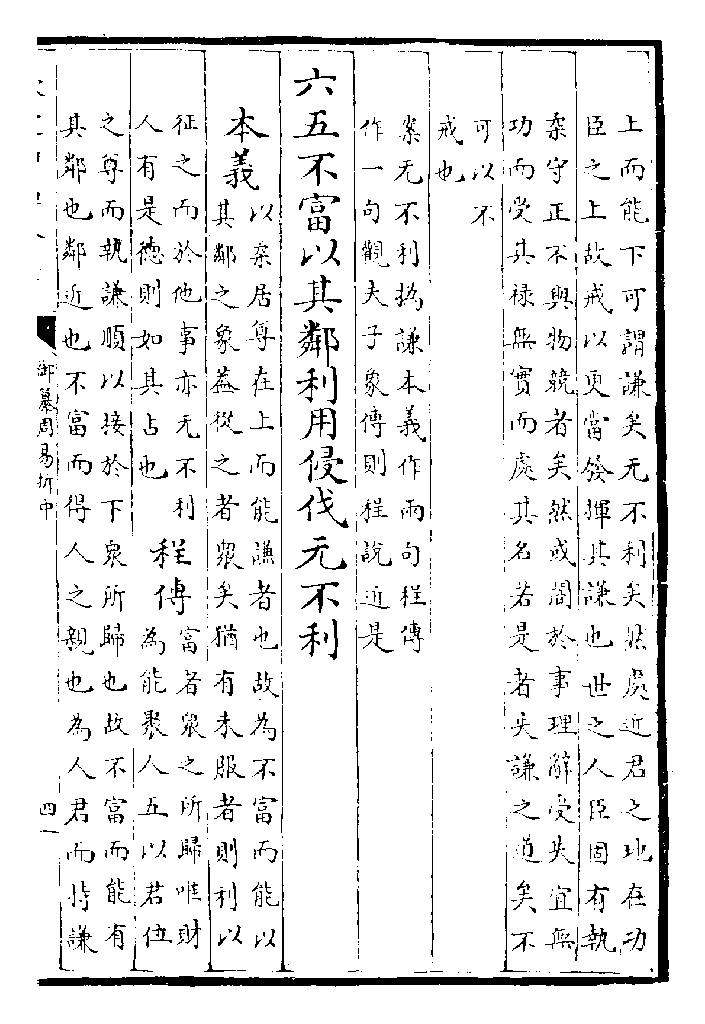 上而能下可謂謙矣无不利矣然處近君之地在功
臣之上故戒以更當發揮其謙也世之人臣固有執
柔守正不與物競者矣然或闇於事理辭受失宜無
功而受其祿無實而處其名若是者失謙之道矣不
可以不
戒也
案无不利撝謙本義作兩句程傳
作一句觀夫子象傳則程說近是
六五不富以其鄰利用侵伐无不利
本義
以柔居尊在上而能謙者也故為不富而能以
其鄰之象蓋從之者衆矣猶有未服者則利以
征之而於他事亦无不利
人有是德則如其占也
程傳
富者衆之所歸唯財
為能聚人五以君位
之尊而執謙順以接於下衆所歸也故不富而能有
其鄰也鄰近也不富而得人之親也為人君而持謙
御纂周易折中
四一